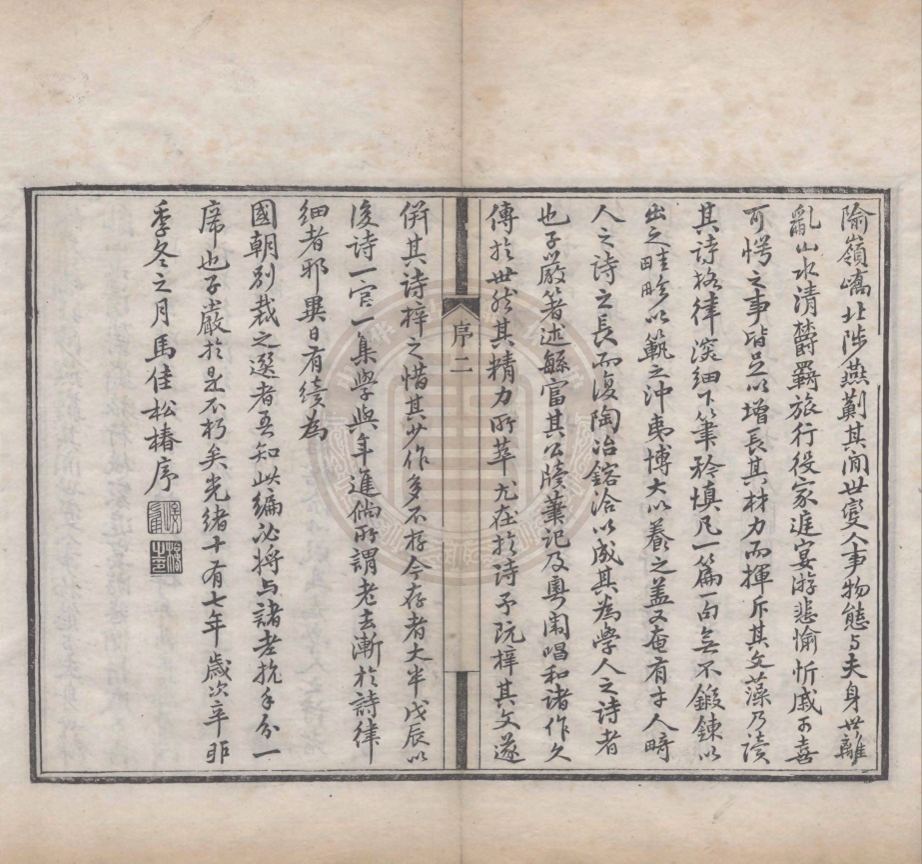 隃嶺嶠北涉燕薊其间世變人事物態与夫身世離
亂山水清欝羇旅行役家庭宴游悲愉忻戚可喜
可愕之事皆足以增長其材力而揮斥其文藻乃讀
其詩格律深细下筆矜慎凡一篇一句無不鍛鍊以
出之畦畛以範之沖夷博大以養之盖又奄有才人畸
人之诗之長而復陶冶鎔洽以成其為學人之诗者
也子嚴箸述繇富其公牘葉记及粤闱唱和诸作久
傳扵世然其精力所萃尤在扵诗予既梓其文遂
序二
併其诗梓之惜其少作多不存今存者大半戊辰以
後诗一官一集學與年進倘所謂老去漸扵詩律
细者邪異日有续為
國朝别裁之選者吾知此编必將与諸老抗手分一
席也子嚴扵是不朽矣光緒十有七年歲次辛卯
季冬之月馬佳松椿序